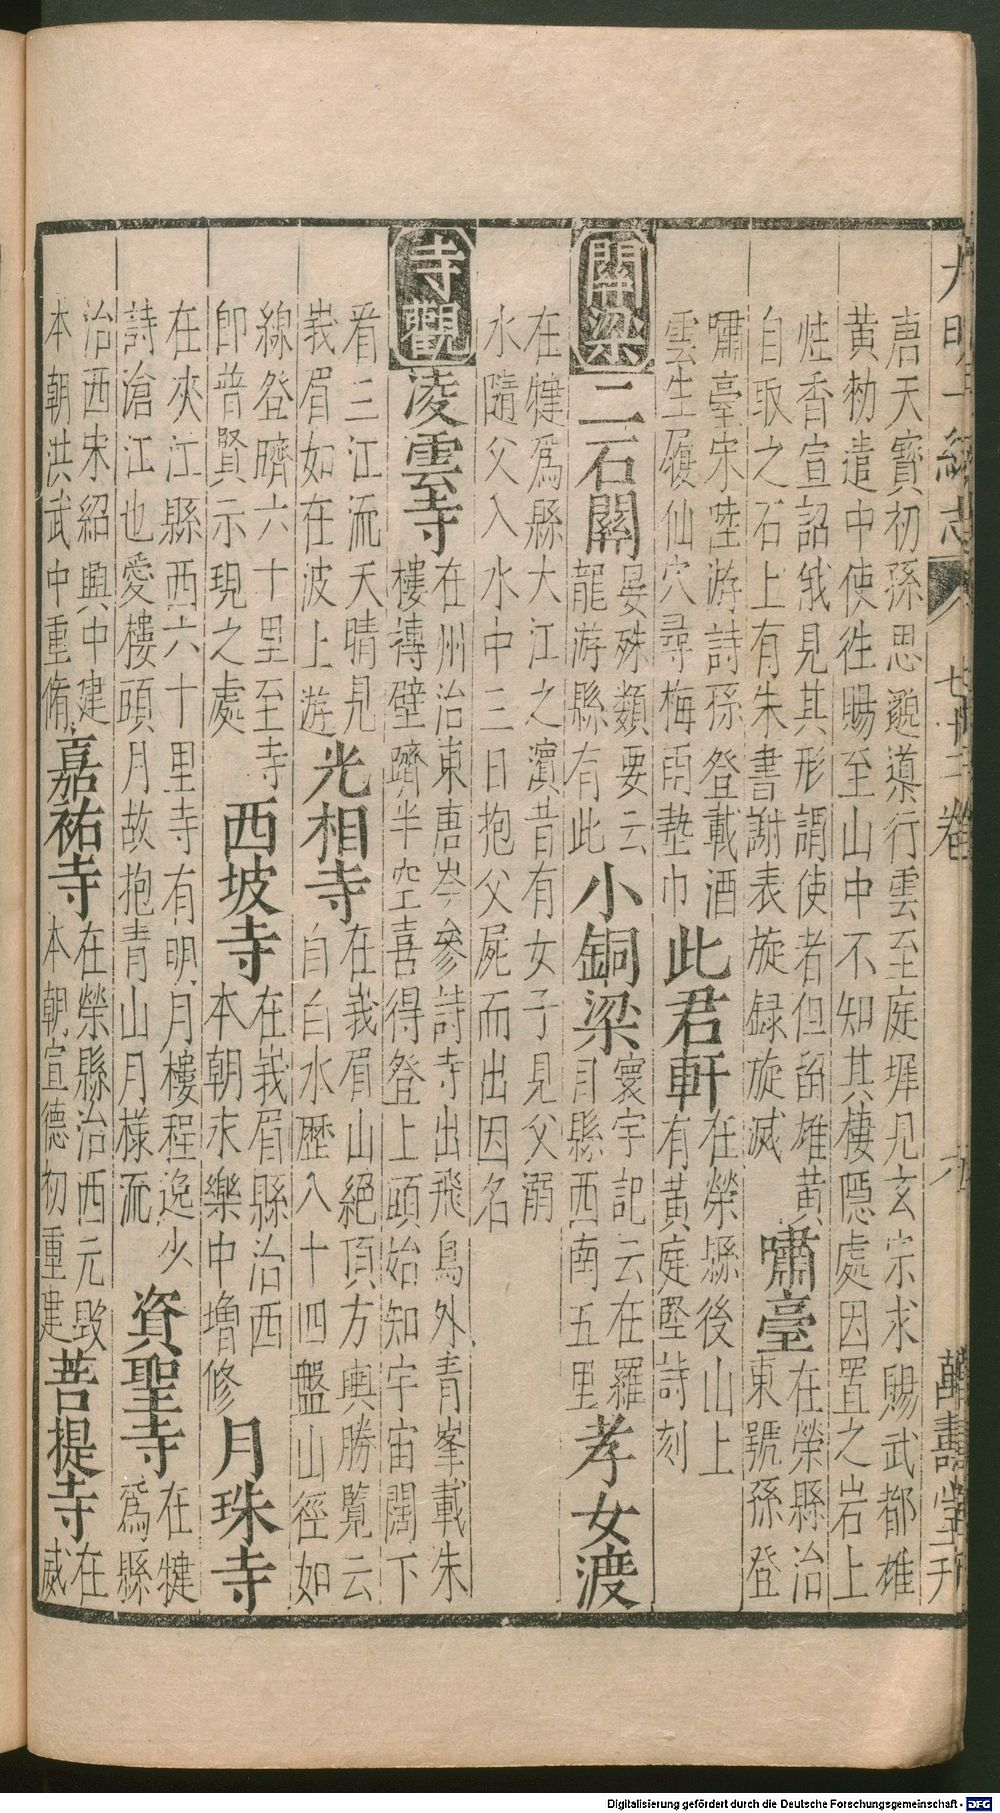 大明一統志 七十二卷 九 萬壽堂刊
唐天寶初孫思邈道行雲至庭墀見玄宗求賜武都雄
黃勑遣中使徃賜至山中不知其棲隱處因置之岩上
炷香宣詔俄見其形謂使者但留雄黃
自取之石上有朱書謝表旋録旋滅
嘯臺
在榮縣治
東號孫登
嘯臺宋陸游詩孫登載酒
雲生履仙穴尋梅雨墊巾
此君軒
在榮縣後山上
有黃庭堅詩刻
關梁
二石闕
晏殊類要云
龍游縣有此
小銅梁
寰宇記云在羅
目縣西南五里
孝女渡
在犍爲縣大江之濵昔有女子見父溺
水隨父入水中三日抱父屍而出因名
寺觀
凌雲寺
在州治東唐岑參詩寺出飛鳥外青峯載朱
樓摶壁躋半空喜得登上頭始知宇宙闊下
看三江流天晴見
峩眉如在波上遊
光相寺
在峩眉山絕頂方輿勝覽云
自白水歷八十四盤山徑如
線登躋六十里至寺
即普賢示現之處
西坡寺
在峩眉縣治西
本朝永樂中增修
月珠寺
在夾江縣西六十里寺有明月樓程逸少
詩滄江也愛樓頭月故抱青山月樣流
資聖寺
在犍
爲縣
治西宋紹興中建
本朝洪武中重脩
嘉祐寺
在榮縣治西元毀
本朝宣德初重建
菩提寺
在
威
Digitalisierung gefördert durch die Deutsche Forschungsgemeinschaft - DFG